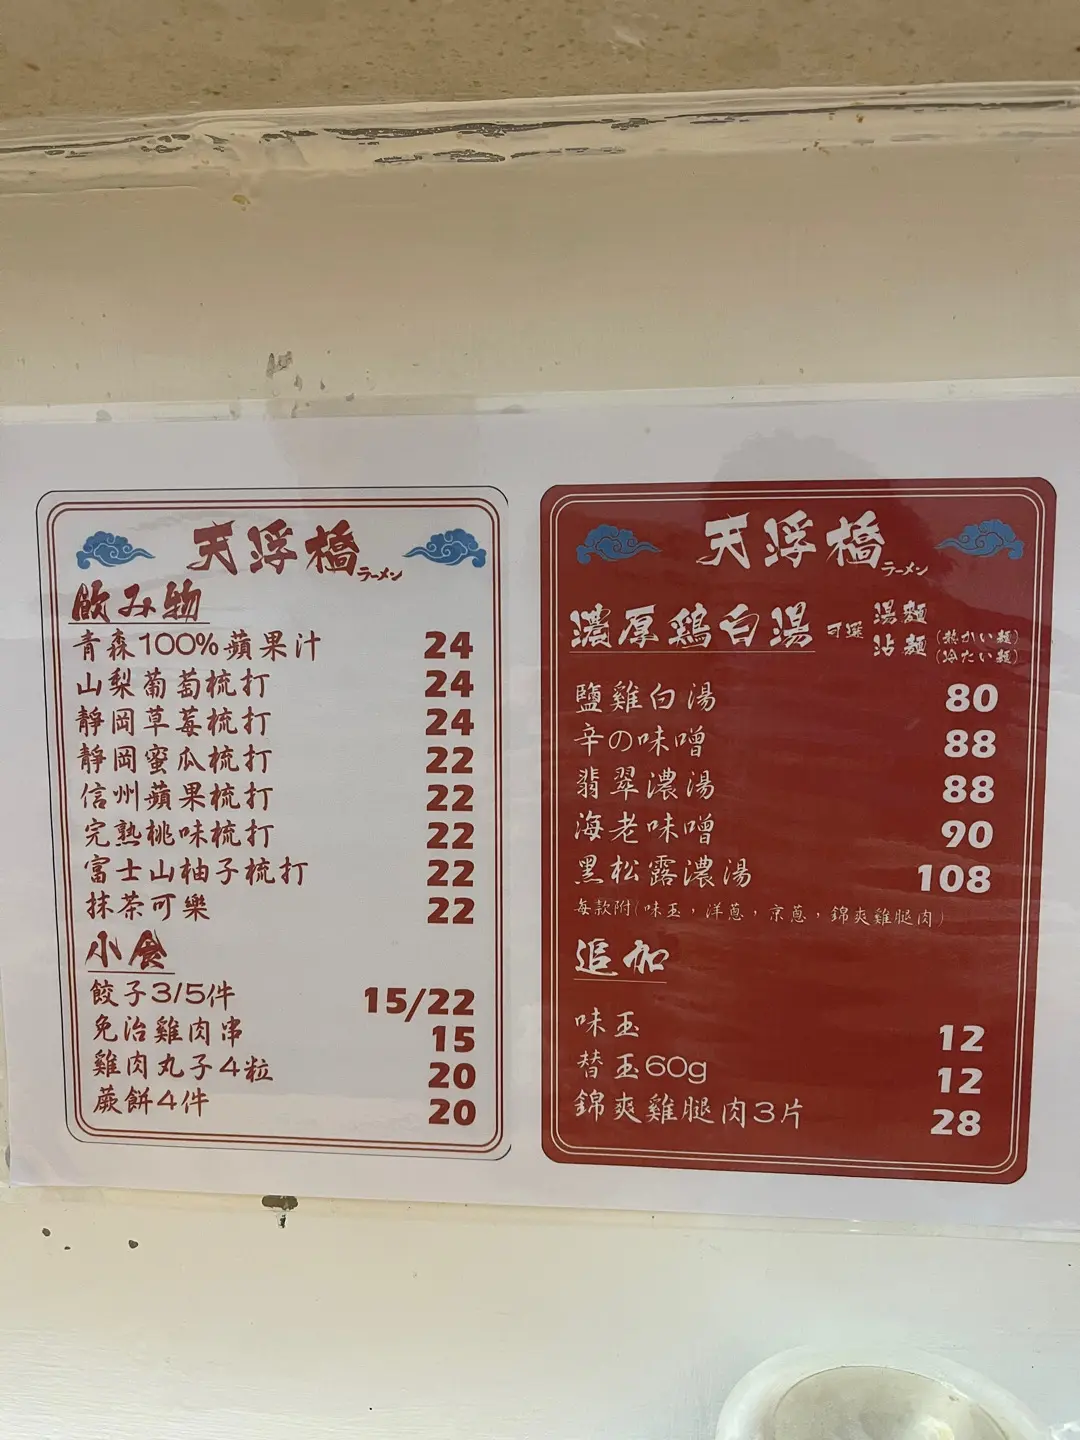 天浮橋
ラーメン
飲み物
青森100%蘋果汁 24
山梨葡萄梳打 24
靜岡草莓梳打 24
靜岡蜜瓜梳打 22
信州蘋果梳打 22
完熟桃味梳打 22
富士山柚子梳打 22
抹茶可樂 22
小食
餃子3/5件 15/22
免治雞肉串 15
雞肉丸子4粒 20
蕨餅4件 20
天浮橋
ラーメン
濃厚鶏白湯 可選 湯麵
沾麵 (熱かい麺)
(冷たい麺)
鹽雞白湯 80
辛の味噌 88
翡翠濃湯 88
海老味噌 90
黑松露濃湯 108
每款附(味玉，洋蔥，京蔥，錦爽雞腿肉)
追加
味玉 12
替玉60g 12
錦爽雞腿肉3片 28